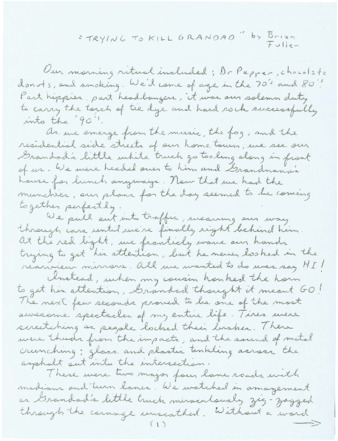 "TRYING TO KILL GRANDAD" by Brian
Fuller
Our morning ritual included; Dr Pepper, chocolate
donuts, and smoking. We'd come of age in the 70's and 80's.
Part hippies, part headbangers, it was our solemn duty
to carry the torch of tie dye and hard rock successfully
into the "90's".
As we emerge from the music, the fog, and the
residential side streets of our home town, we see our
Grandad's little white truck go tooling along in front
of us. We were headed over to him and Grandmama's
house for lunch anyways. Now that we had the
munchies, our plans for the day seemed to be coming
together perfectly.
We pull out into traffic, weaving our way
through cars until we're finally right behind him.
At the red light, we franticly wave our hands
trying to get his attention, but he never looked in the
rearview mirrors. All we wanted to do was say HI!
Instead, when my cousin honked the horn
to get his attention, Grandad thought it meant GO!
The next few seconds proved to be one of the most
awesome spectacles of my entire life. Tires were
screetching as people locked their brakes. There
were thuds from the impacts, and the sound of metal
crunching; glass and plastic tinkling across the
asphalt out into the intersection.
These were two major four lane roads with
medians and turn lanes. We watched in amazement
as Grandad's little truck miraculously zig-zagged
through the carnage unscathed. Without a word
(1)